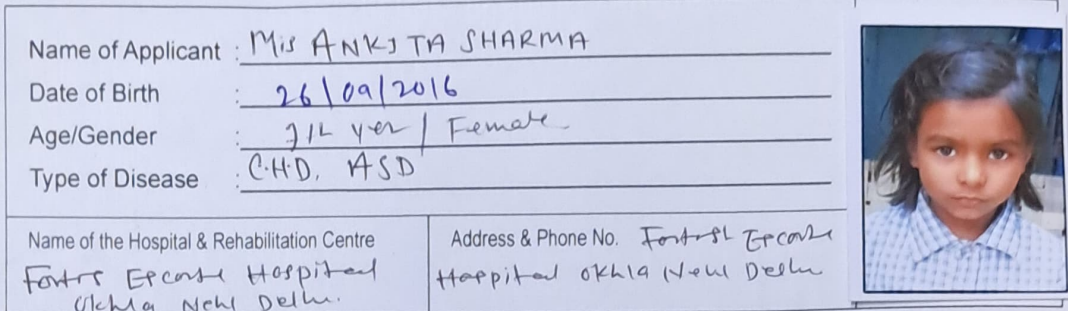 Name of Applicant : Mis ANKITA SHARMA
Date of Birth : 26/09/2016
Age/Gender : yer / Female
Type of Disease : C.H.D. ASD
Name of the Hospital & Rehabilitation Centre
Fortis Escorts Hospital
Okhla New Delhi.
Address & Phone No. Fortis Escorts
Hospital Okhla New Delhi